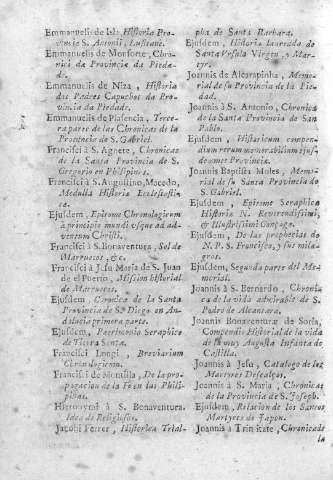 Emmanuelis de Isla, Historia Pro-
vincia S. Antonii, Lusitani.
Emmanuelis de Monforte, Chro-
nica da Provincia da Pieda-
de.
Emmanuelis de Niza, Historia
dos Padres Capuchos da Pro-
vincia da Piedade.
Emmanuelis de Plasencia, Terce-
ra parte de las Chronicas de la
Provincia de S. Gabriel.
Francisci à S. Agnete, Chronicas
de la Santa Provincia de S.
Gregorio en Philipinas.
Francisci à S. Augustino, Macedo,
Medulla Historiæ Ecclesiasti-
cæ.
Ejusdem, Epitome Chronologicum
à principio mundi usque ad ad-
ventum Christi.
Francisci à S. Bonaventura, Sol de
Marruecos, &c.
Francisci à Jesu Maria de S. Juan
de el Puerto, Mission historial
de Marruecos.
Ejusdem, Coronica de la Santa
Provincia de S. Diego en An-
dalucia primera parte.
Ejusdem, Patrimonio Seraphico
de Tierra Santa.
Francisci Longi, Breviarium
Chronologicum.
Francisci de Montilla, De la pro-
pagacion de la Fè en las Phili-
pinas.
Hieronymi à S. Bonaventura,
Idea de Religiosos.
Jacobi Ferrer, Historica Trial-
pha de Santa Barbara.
Ejusdem, Historia laureada de
Santa Ursula Virgen, y Mar-
tyr.
Joannis de Alcarapinha, Memo-
rial de su Provincia de la Pie-
dad.
Joannis à S. Antonio, Chronica
de la Santa Provincia de San
Pablo.
Ejusdem, Historicum compen-
dium rerum memorabilium ejus-
dem Provinciæ.
Joannis Baptista Moles, Memo-
rial de su Santa Provincia de
S. Gabriel.
Ejusdem, Epitome Seraphica
Historia N. Reverendissimi,
& Illustrissimi Gonzaga.
Ejusdem, De las prophecias de
N. P. S. Francisco, y sus mila-
gros.
Ejusdem, Segunda parte del Me-
morial.
Joannis à S. Bernardo, Chroni-
ca de la vida admirable de S.
Pedro de Alcantara.
Joannis Bonaventuræ de Soria,
Compendio Historial de la vida
de la muy Augusta Infanta de
Castilla.
Joannis à Jesu, Catalogo de los
Martyres Descalços.
Joannis à S. Maria, Chronicas
de la Provincia de S. Joseph.
Ejusdem, Relacion de los Santos
Martyres de Japon.
Joannis à Trinitate, Chronica de
la